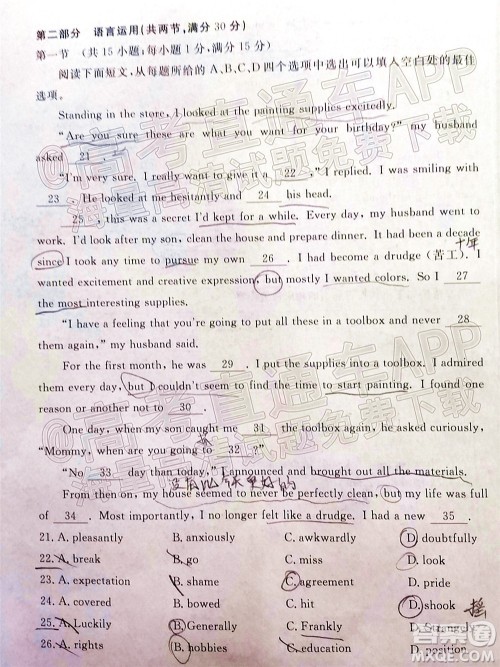 第二部分 语言运用(共两节,满分 30 分)
第一节 (共 15 小题;每小题 1 分,满分 15 分)
阅读下面短文,从每题所给的 A、B、C、D 四个选项中选出可以填入空白处的最佳
选项。
Standing in the store, I looked at the painting supplies excitedly.
"Are you sure these are what you want for your birthday?" my husband
asked 21 .
"I'm very sure. I really want to give it a 22 ," I replied. I was smiling with
23 . He looked at me hesitantly and 24 his head.
25 , this was a secret I'd kept for a while. Every day, my husband went to
work. I'd look after my son, clean the house and prepare dinner. It had been a decade
十年
since I took any time to pursue my own 26 . I had become a drudge (苦工). I
wanted excitement and creative expression, but mostly I wanted colors. So I 27
the most interesting supplies.
"I have a feeling that you're going to put all these in a toolbox and never 28
them again," my husband said.
For the first month, he was 29 . I put the supplies into a toolbox. I admired
them every day, but I couldn't seem to find the time to start painting. I found one
reason or another to 30 .
One day, when my son caught me 31 the toolbox again, he asked curiously,
"Mommy, when are you going to 32 ?"
"No 33 day than today," I announced and brought out all the materials.
没有比今天更好的
From then on, my house seemed to never be perfectly clean, but my life was full
of 34 . Most importantly, I no longer felt like a drudge. I had a new 35 .
21. A. pleasantly B. anxiously C. awkwardly D. doubtfully
22. A. break B. go C. miss D. look
23. A. expectation B. shame C. agreement D. pride
24. A. covered B. bowed C. hit D. shook 摇
25. A. Luckily B. Generally C. Frankly D. Strangely
26. A. rights B. hobbies C. education D. position
@高考直通车APP
海量高清试题免费下载
@高考直通车APP
海量高清试题免费下载
答案圈